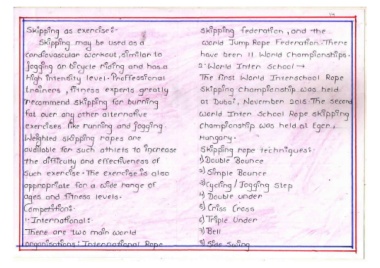 Skipping as exercise:-
Skipping may be used as a
cardiovascular workout, similar to
jogging or bicycle riding and has a
high intensity level. Proffessional
trainers, fitness experts greatly
recommend skipping for burning
fat over any other alternative
exercises like running and jogging.
Weighted skipping ropes are
available for such athlets to increase
the difficulty and effectiveness of
such exercise. The exercise is also
appropriate for a wide range of
ages and fitness levels.
Competition:-
International:
There are two main world
organisations: International Rope
skipping federation, and the
world Jump Rope Federation. There
have been 11 World championships.
2. World Inter School →
The first World Interschool Rope
Skipping Championship was held
at Dubai, November 2015. The second
World Inter School Rope skipping
championship was held at Eger,
Hungary.
Skipping rope techniques:
1) Double Bounce
2) Simple Bounce
3) Cycling / Jogging Step
4) Double under
5) Criss Cross
6) Triple Under
7) Bell
8) Side Swing